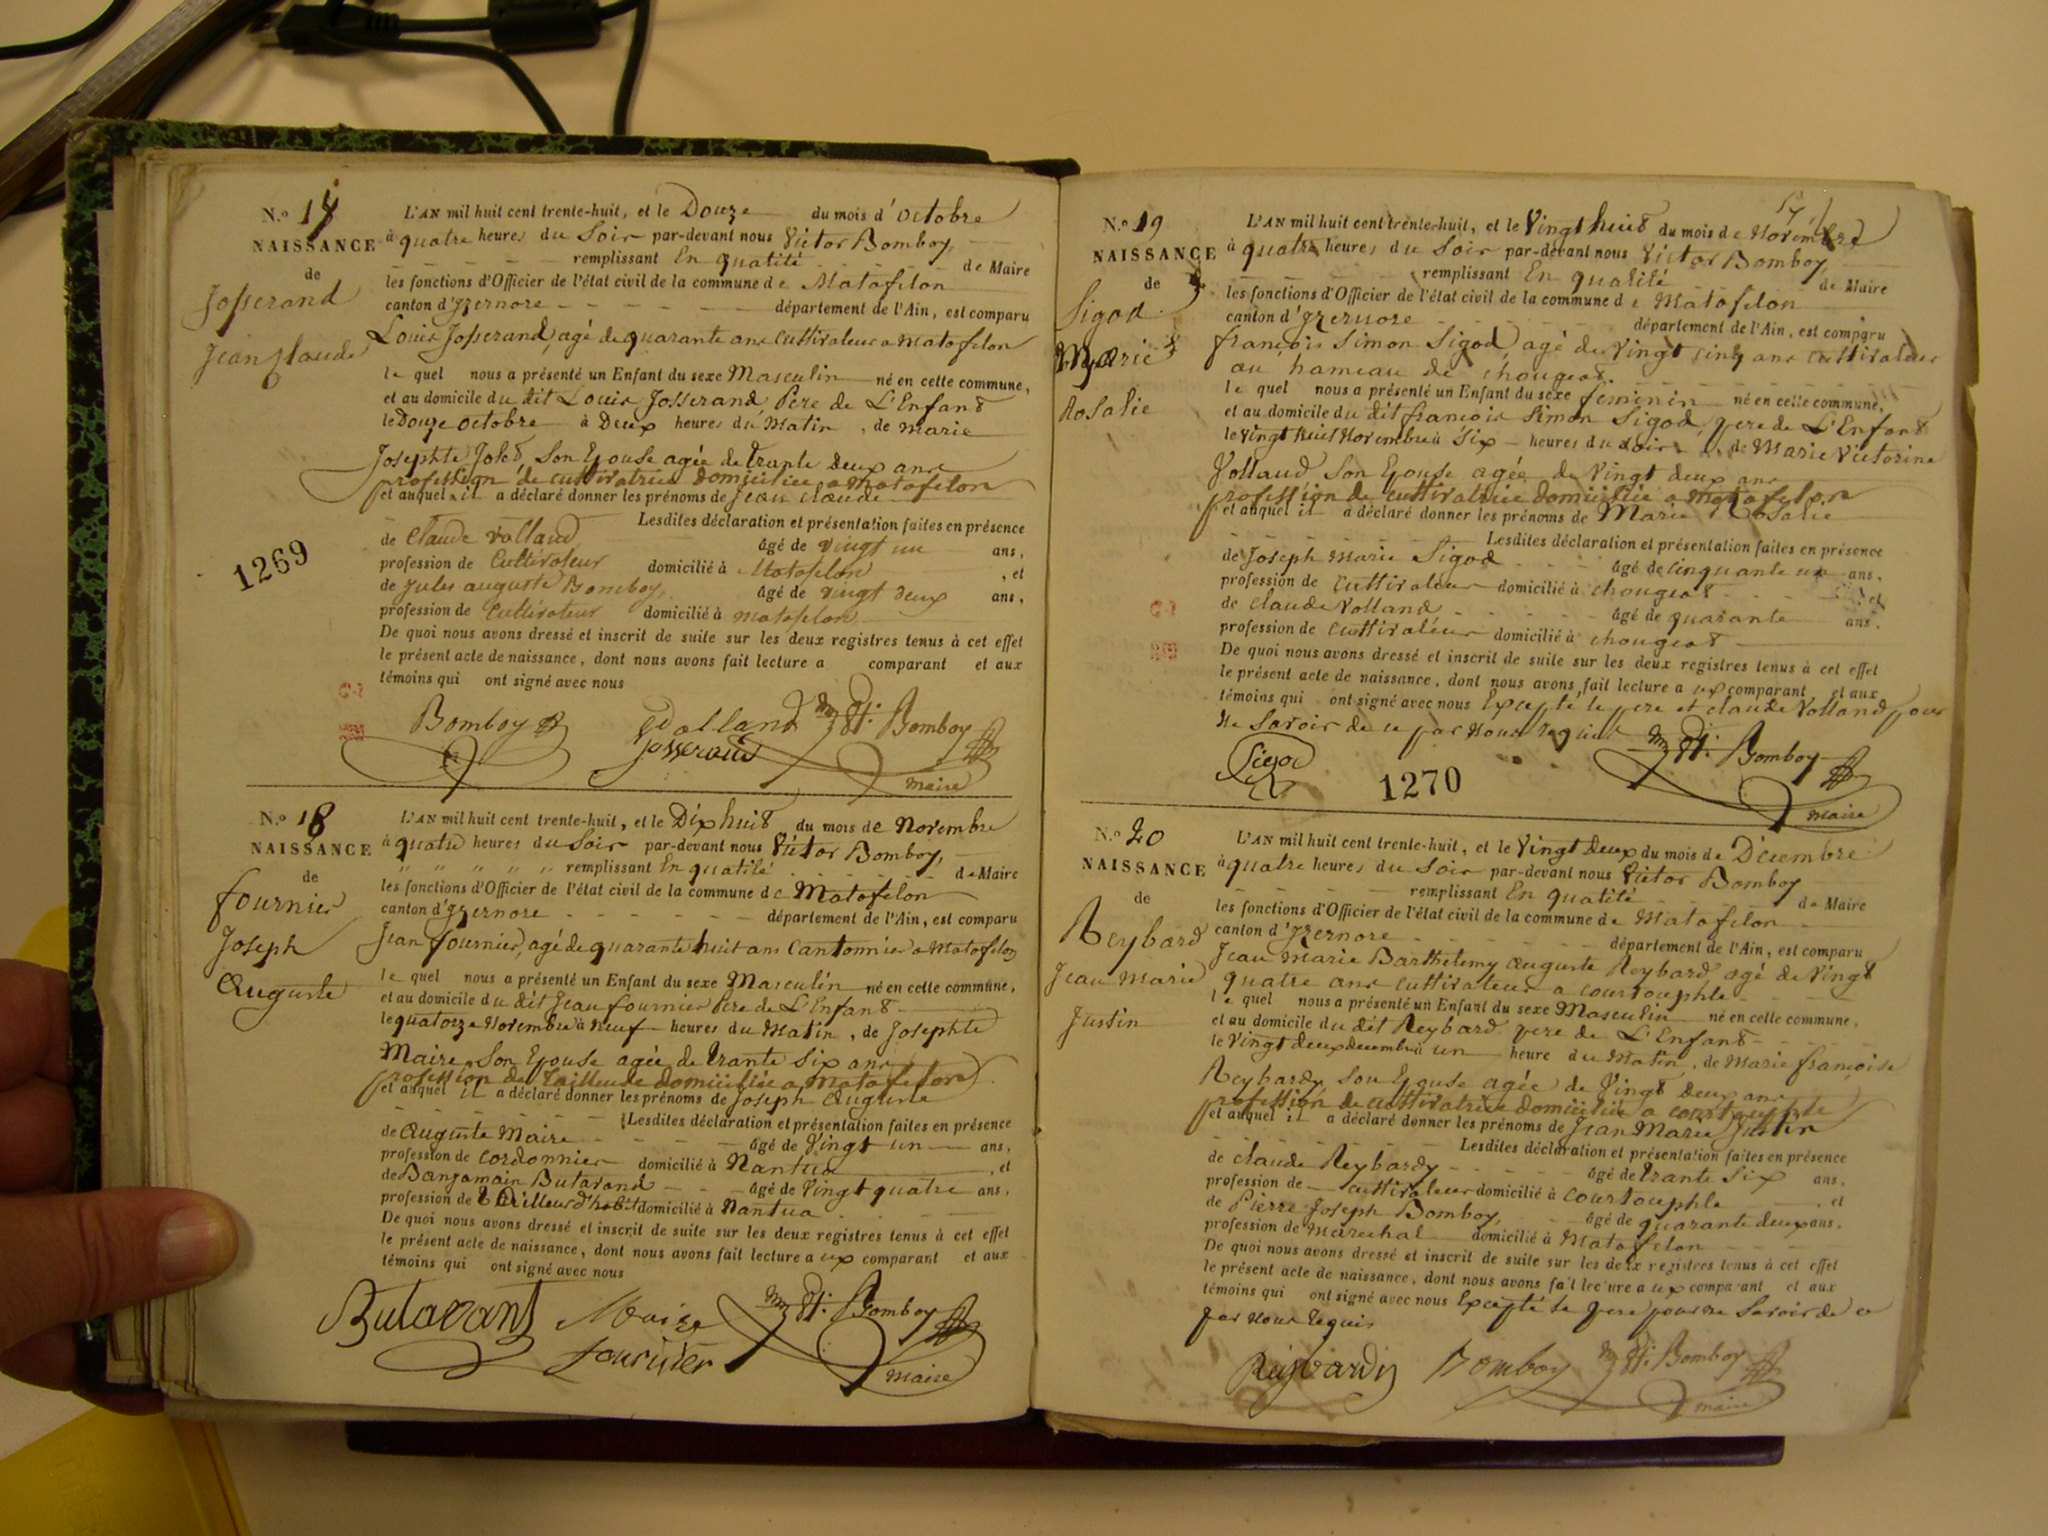 N.o 17
NAISSANCE
de
Josserand
Jean Claude
L'AN mil huit cent trente-huit, et le Douze du mois d'octobre
à quatre heures du Soir par-devant nous Victor Bomboy,
remplissant En qualité de Maire
les fonctions d'Officier de l'état civil de la commune de Matafelon
canton d'Izernore département de l'Ain, est comparu
Louis Josserand, agé de quarante ans Cultivateur a Matafelon
le quel nous a présenté un Enfant du sexe Masculin né en cette commune,
et au domicile du dit Louis Josserand, Père de L'Enfant
le Douze octobre à Deux heures du Matin, de Marie
Josephte son Epouse agée de trante deux ans
profession de cultivatrice domiciliée a Matafelon
et auquel il a déclaré donner les prénoms de Jean Claude
Lesdites déclaration et présentation faites en présence
de Claude Volland âgé de vingt un ans,
profession de Cultivateur domicilié à Matafelon, et
de Jules auguste Bomboy, âgé de vingt deux ans,
profession de Cultivateur domicilié à Matafelon
De quoi nous avons dressé et inscrit de suite sur les deux registres tenus à cet effet
le présent acte de naissance, dont nous avons fait lecture a comparant et aux
témoins qui ont signé avec nous
Bomboy Volland Bomboy
Josserand
maire
1269
N.o 18
NAISSANCE
de
fournier
Joseph
Auguste
L'AN mil huit cent trente-huit, et le Dix huit du mois de Novembre
à quatre heures du Soir par-devant nous Victor Bomboy,
" " " " " remplissant En qualité de Maire
les fonctions d'Officier de l'état civil de la commune de Matafelon
canton d'Izernore département de l'Ain, est comparu
Jean fournier, agé de quarante huit ans Cantonnier a Matafelon
le quel nous a présenté un Enfant du sexe Masculin né en cette commune,
et au domicile du dit Jean fournier Père de L'Enfant
le quatorze Novembre à neuf heures du Matin, de Josephte
Maire Son Epouse agée de trante six ans
profession de Tailleuse domiciliée a Matafelon
et auquel il a déclaré donner les prénoms de Joseph Auguste
Lesdites déclaration et présentation faites en présence
de Auguste Maire âgé de Vingt un ans,
profession de cordonnier domicilié à Nantua, et
de Banjamain Butavand âgé de Vingt quatre ans,
profession de tailleur d'habit domicilié à Nantua
De quoi nous avons dressé et inscrit de suite sur les deux registres tenus à cet effet
le présent acte de naissance, dont nous avons fait lecture a ux comparant et aux
témoins qui ont signé avec nous
Butavant Maire Bomboy
fournier
maire
N.o 19
NAISSANCE
de
Sigod
Marie
Rosalie
L'AN mil huit cent trente-huit, et le Vingt huit du mois de Novembre
à quatre heures du Soir par-devant nous Victor Bomboy,
remplissant En qualité de Maire
les fonctions d'Officier de l'état civil de la commune de Matafelon
canton d'Izernore département de l'Ain, est comparu
françois Simon Sigod, agé de Vingt cinq ans cultivateur
au hameau de chougeat.
le quel nous a présenté un Enfant du sexe feminin né en cette commune,
et au domicile du dit françois Simon Sigod, pere de L'Enfant
le vingt huit Novembre à six heures du soir, de Marie Victorine
Volland son Epouse agée de Vingt deux ans
profession de cultivatrice domiciliée a Matafelon
et auquel il a déclaré donner les prénoms de Marie Rosalie
Lesdites déclaration et présentation faites en présence
de Joseph Marie Sigod âgé de cinquante un ans,
profession de cultivateur domicilié à chougeat et
de claude Volland âgé de quarante ans,
profession de cultivateur domicilié à chougeat
De quoi nous avons dressé et inscrit de suite sur les deux registres tenus à cet effet
le présent acte de naissance, dont nous avons fait lecture a ux comparant et aux
témoins qui ont signé avec nous Excepté le pere et claude Volland pour
ne Savoir de ce par Nous requis
Sigod Bomboy
maire
1270
N.o 20
NAISSANCE
de
Reybard
Jean Marie
Justin
L'AN mil huit cent trente-huit, et le Vingt deux du mois de Décembre
à quatre heures du Soir par-devant nous Victor Bomboy
remplissant En qualité de Maire
les fonctions d'Officier de l'état civil de la commune de Matafelon
canton d'Izernore département de l'Ain, est comparu
Jean Marie Barthelemy auguste Reybard agé de Vingt
quatre ans cultivateur a courtouphle
le quel nous a présenté un Enfant du sexe Masculin né en cette commune,
et au domicile du dit Reybard pere de L'Enfant
le Vingt deux decembre à un heure du Matin, de Marie françoise
Reybardy Son Epouse agée de Vingt deux ans
profession de cultivatrice domiciliée a courtouphle
et auquel il a déclaré donner les prénoms de Jean Marie Justin
Lesdites déclaration et présentation faites en présence
de claude Reybardy âgé de trante six ans,
profession de cultivateur domicilié à courtouphle et
de Pierre Joseph Bomboy, âgé de quarante deux ans,
profession de Marechal domicilié à Matafelon
De quoi nous avons dressé et inscrit de suite sur les deux registres tenus à cet effet
le présent acte de naissance, dont nous avons fait lecture a ux comparant et aux
témoins qui ont signé avec nous Excepté le pere pour ne Savoir de ce
par Nous requis
Reybardy Bomboy Bomboy
maire